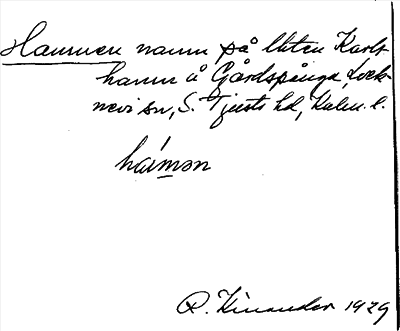 Hamnen namn på liten Karls-
hamn å Gårdspånga, Lock-
nevi sn, S. Tjusts hd, Kalm. l.
hámən
R. Kinander 1929